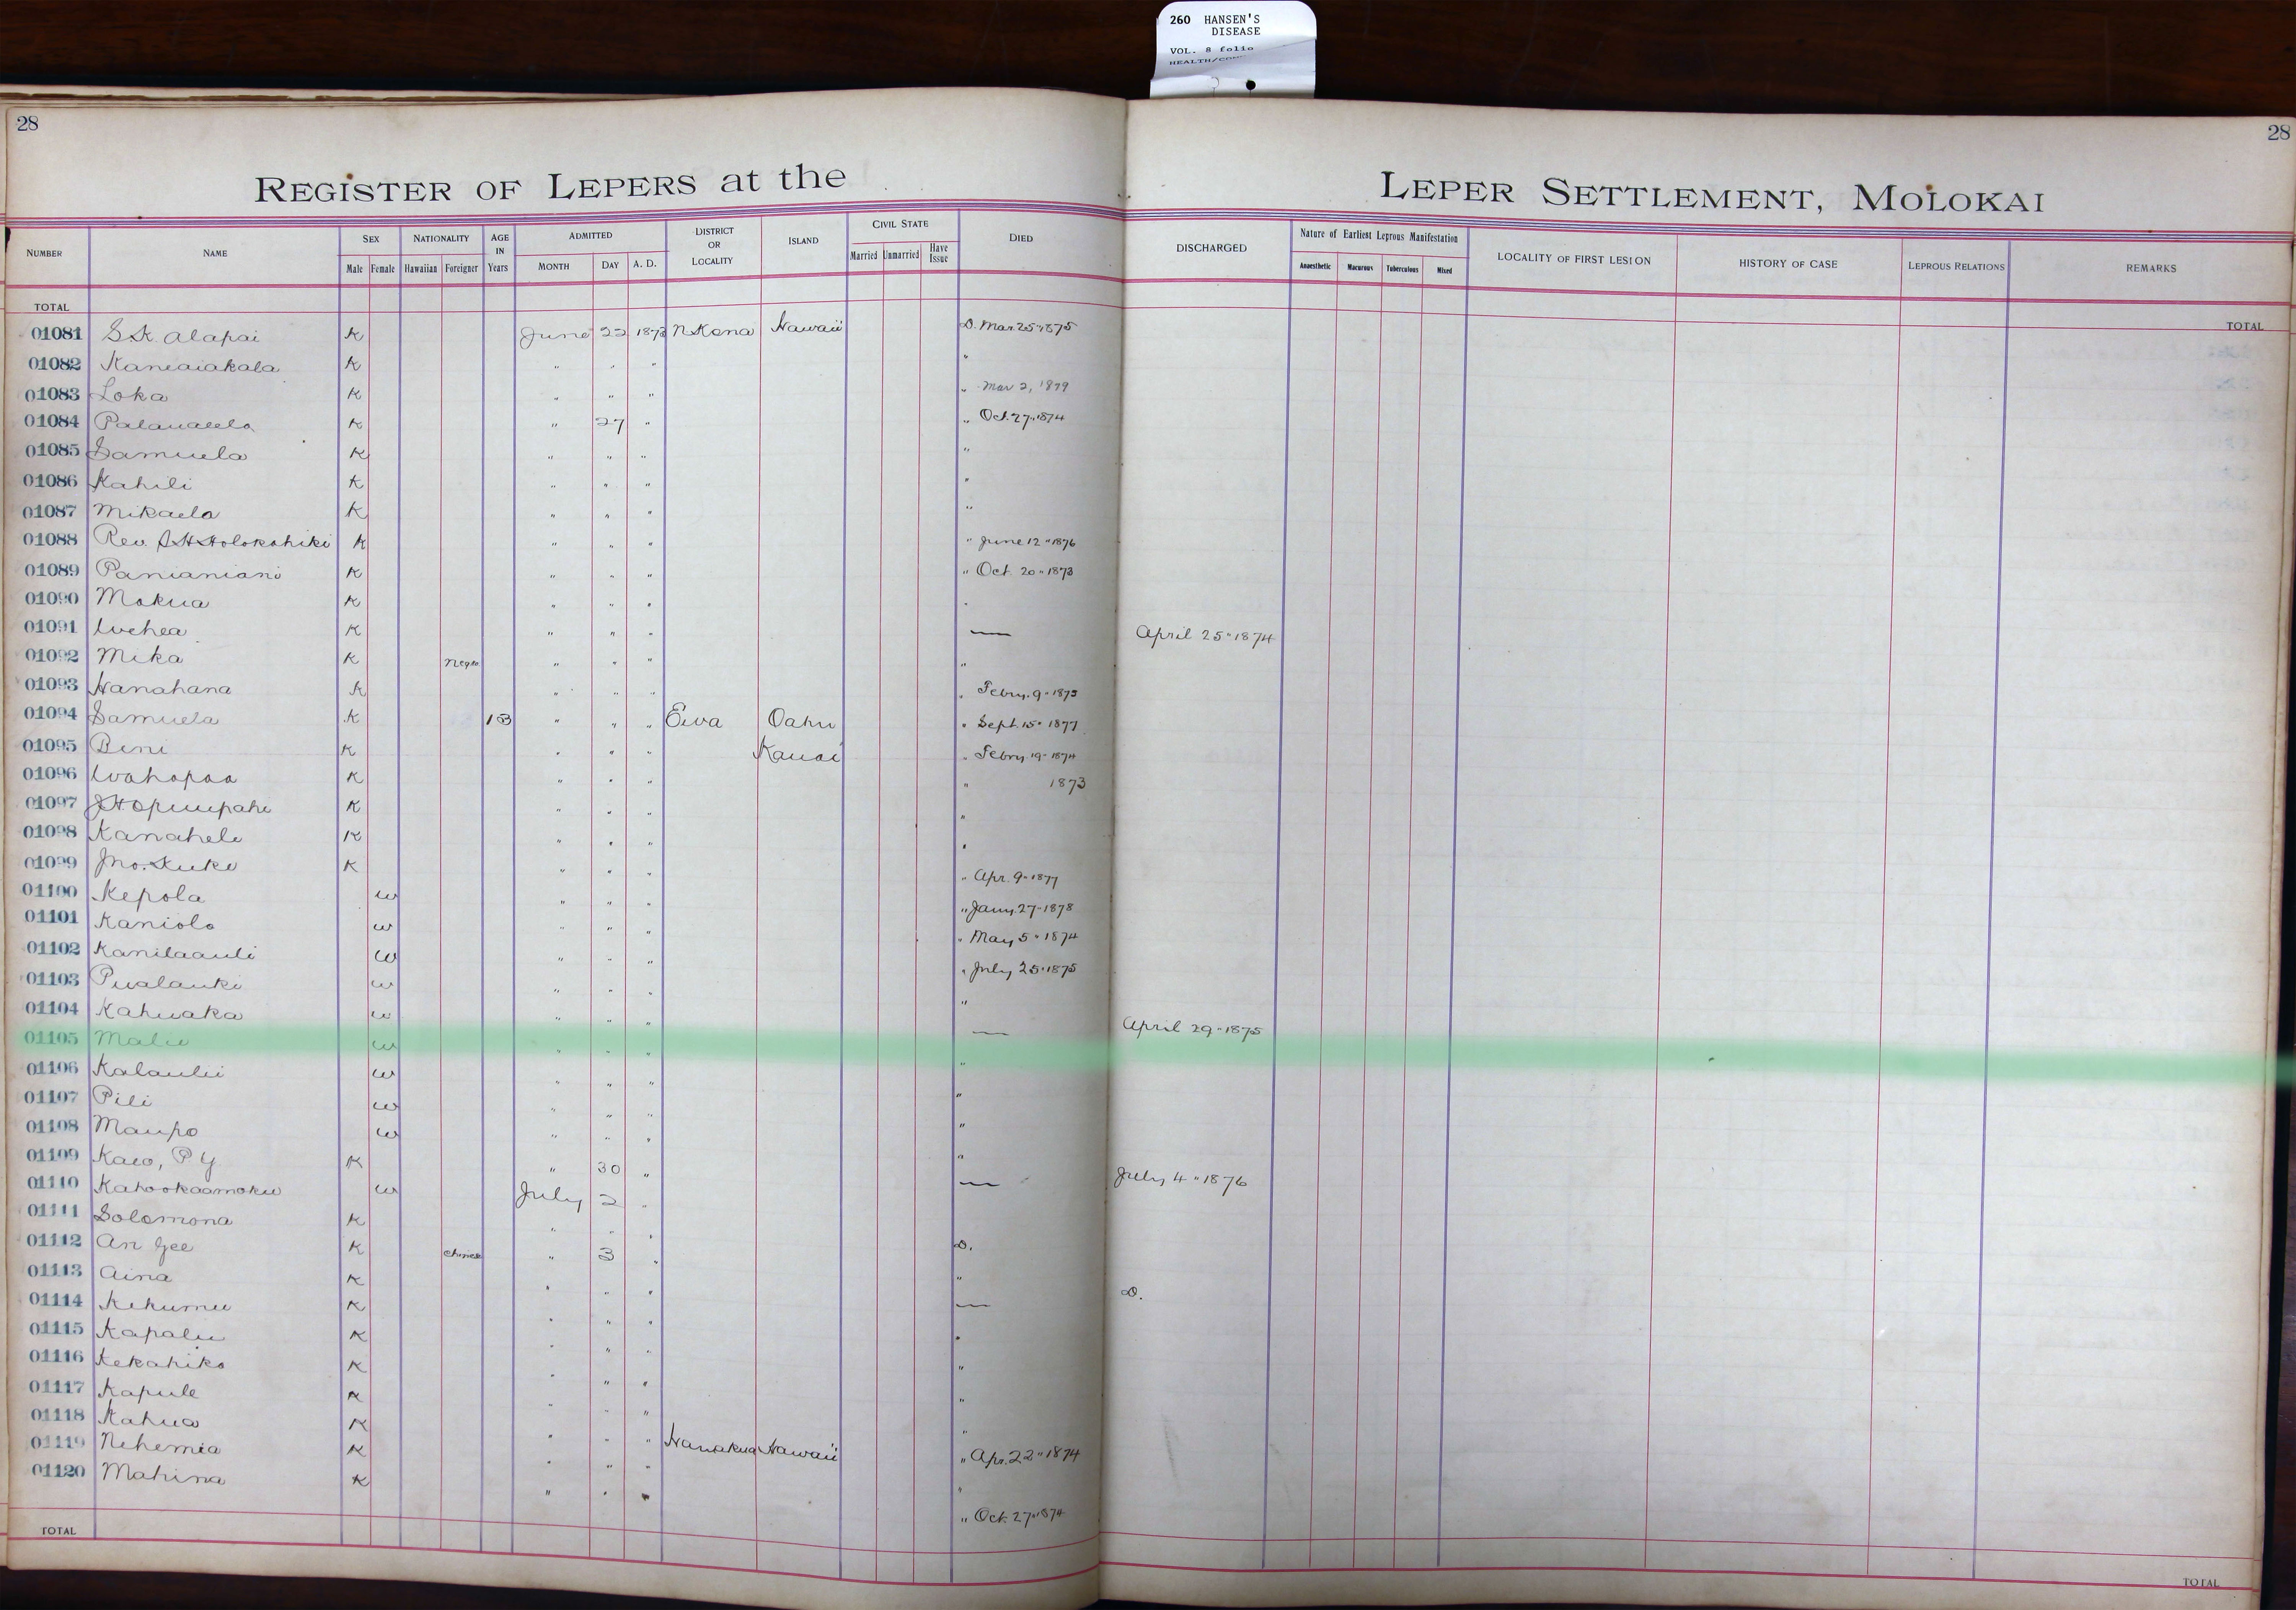 260 HANSEN'S
DISEASE
VOL. 8 folio
28
28
REGISTER OF LEPERS at the LEPER SETTLEMENT, MOLOKAI
NUMBER NAME SEX Male Female NATIONALITY Hawaiian Foreigner AGE IN Years ADMITTED MONTH DAY A. D. DISTRICT OR LOCALITY ISLAND CIVIL STATE Married Unmarried Have Issue DIED DISCHARGED Nature of Earliest Leprous Manifestation Anaesthetic Macurous Tuberculous Mixed LOCALITY OF FIRST LESION HISTORY OF CASE LEPROUS RELATIONS REMARKS
TOTAL TOTAL
01081 S.K. Alapai K June 22 1873 N Kona Hawaii D. Mar. 25 " 1875
01082 Kaneaiakala K " " " "
01083 Loka K " " " " Mar 2, 1879
01084 K " 27 " " Oct. 27 " 1874
01085 Samuela K " " " "
01086 Kahili K " " " "
01087 Mikaela K " " " "
01088 Rev. S H Holokahiki K " " " " June 12 " 1876
01089 Panianiani K " " " " Oct. 20 " 1873
01090 Mokua K " " " "
01091 Wehea K " " " — April 25 " 1874
01092 Mika K Negro " " " "
01093 Hanahana K " " " " Febry. 9 "
01094 Samuela K 13 " " " Ewa Oahu " Sept. 15 " 1877
01095 Beni K " " " Kauai " Febry 19 " 1874
01096 Wahapaa K " " " " 1873
01097 J.H. Opuupahi K " " " "
01098 Kanahele K " " " "
01099 Jno. Kuke K " " " " Apr. 9 " 1877
01100 Kepola w " " " " Jany. 27 " 1878
01101 Kaniolo w " " " " May 5 " 1874
01102 Kanilaauli w " " " " July 25 " 1875
01103 Pualauki w " " " "
01104 Kahuaka w " " " — April 29 " 1875
01105 Malu w " " " "
01106 Kalaulii w " " " "
01107 Pili w " " " "
01108 Maupo w " " " "
01109 Kaeo, P Y K " 30 " — July 4 " 1876
01110 Kahookaamoku w July 2 "
01111 Solomona K " " " D.
01112 An Gee K Chinese " 3 " "
01113 Aina K " " " — D.
01114 Kekumu K " " " "
01115 Kapalu K " " " "
01116 Kekahiko K " " " "
01117 Kapule K " " " "
01118 Kahua K " " " Hamakua Hawaii " Apr. 22 " 1874
01119 Nehemia K " " " "
01120 Mahina K " " " " Oct. 27 " 1874
TOTAL TOTAL